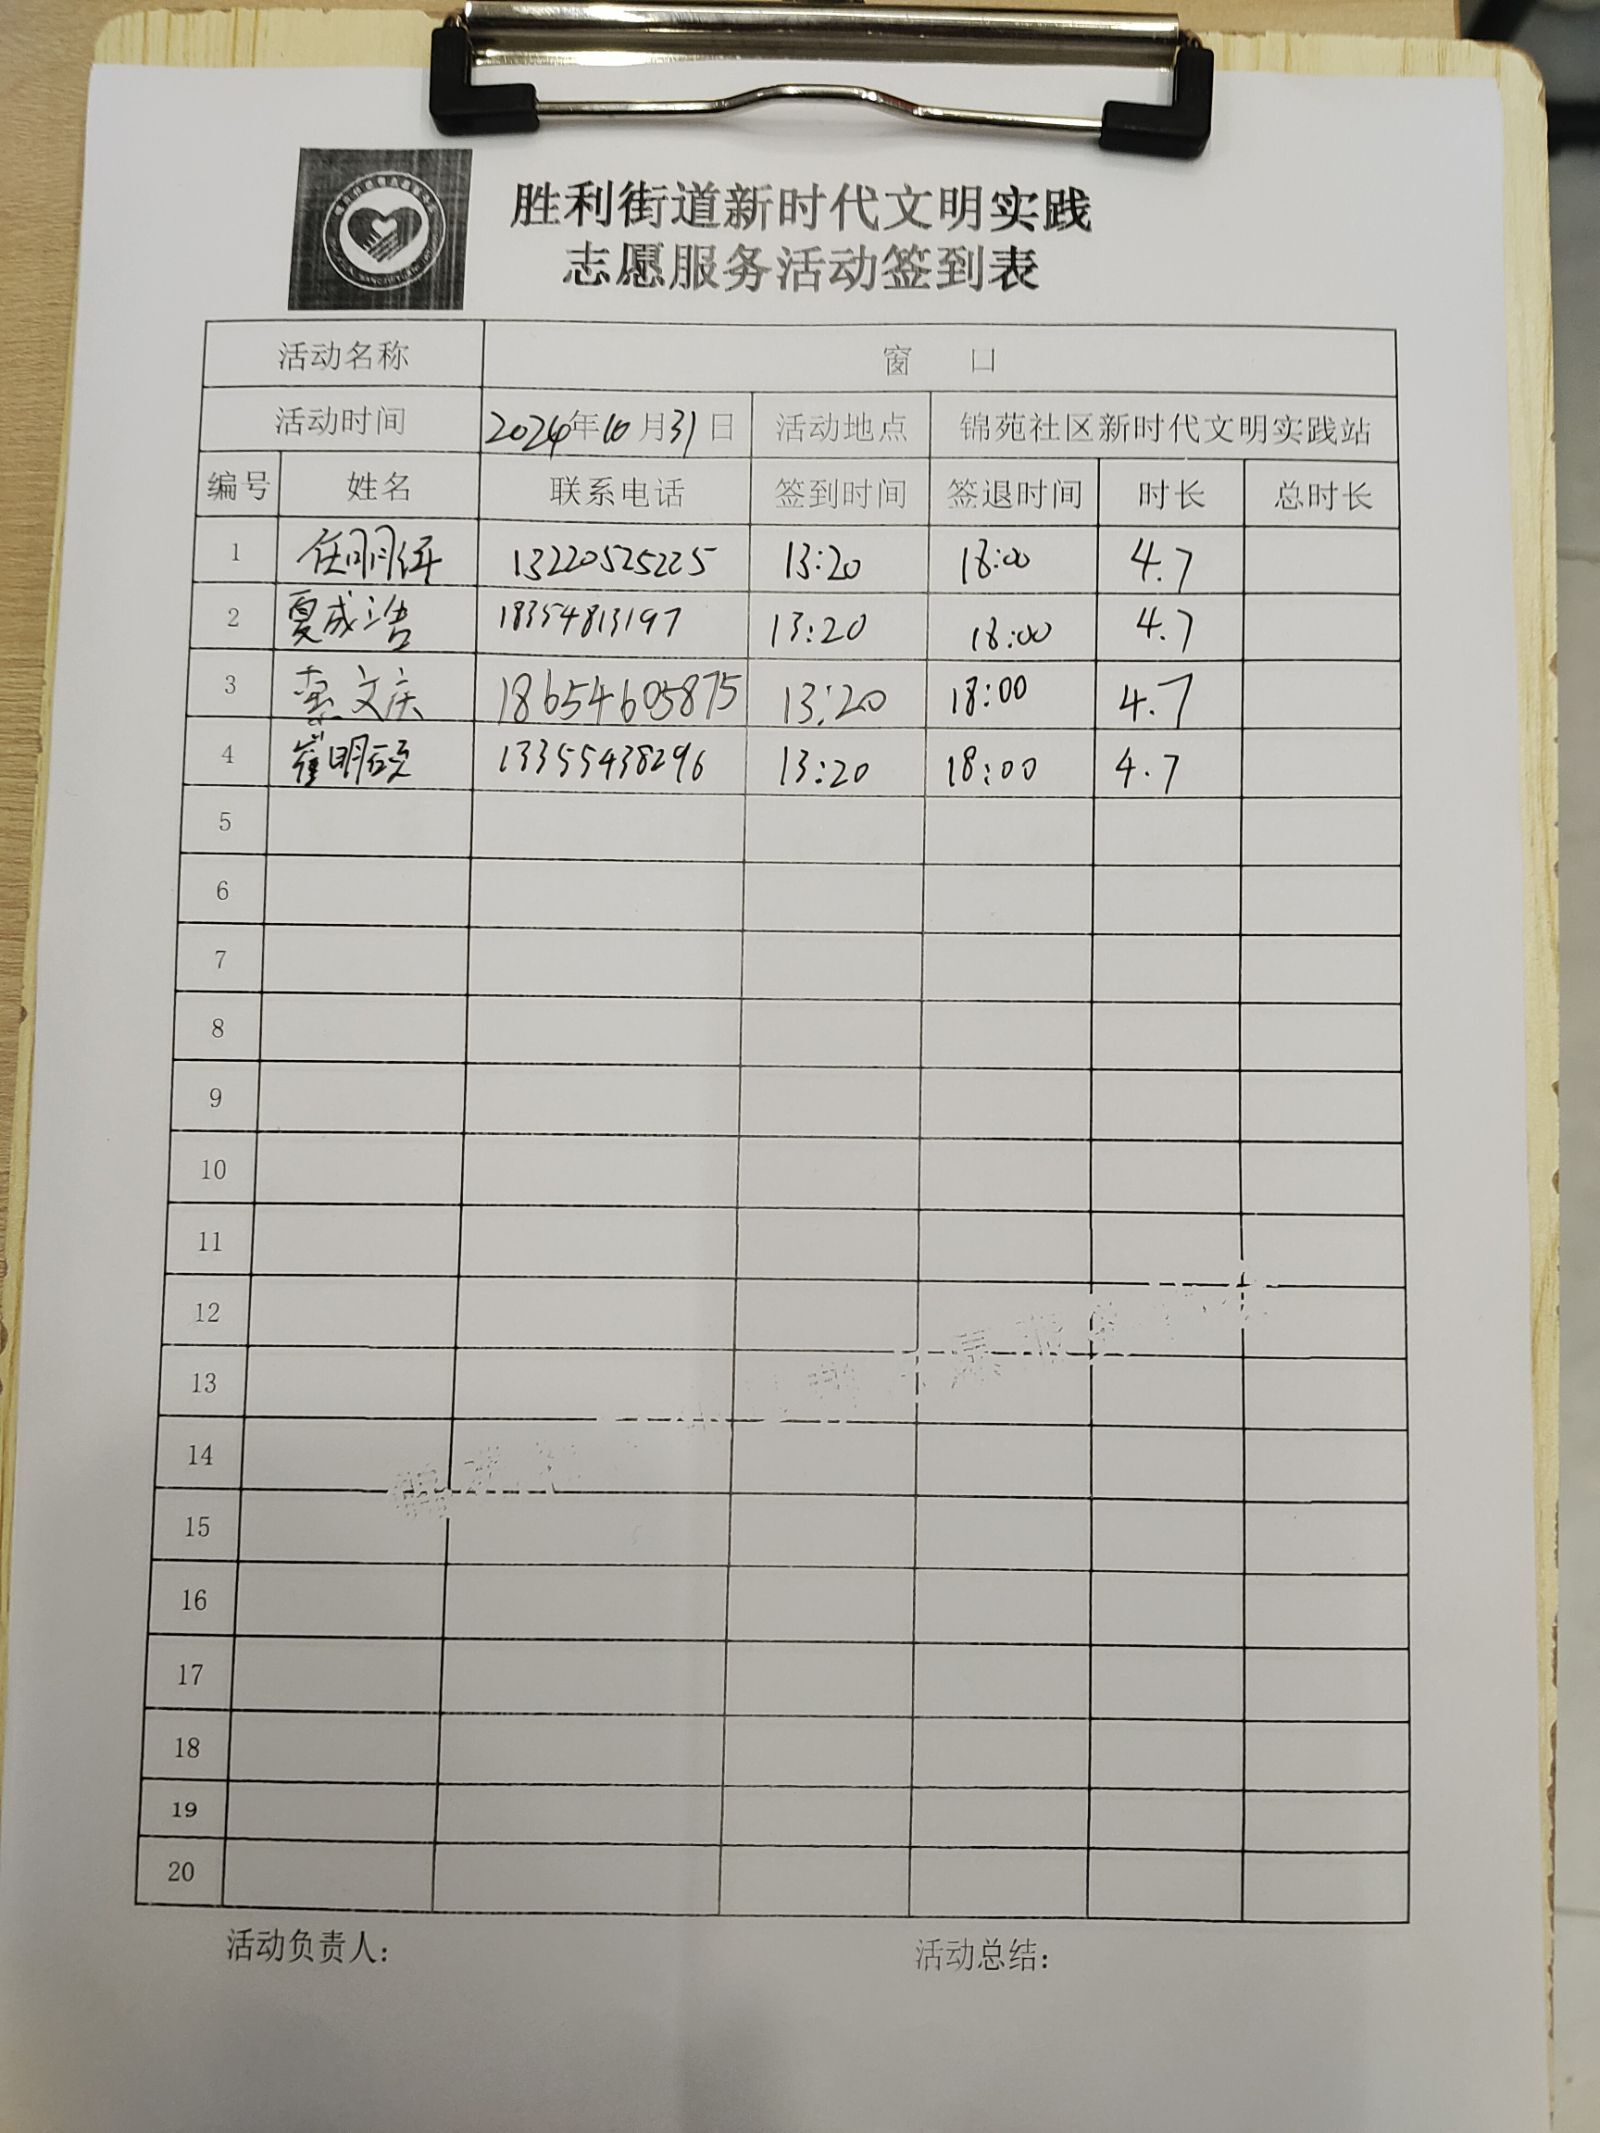 胜利街道新时代文明实践
志愿服务活动签到表
活动名称 窗 口
活动时间 2024年10月31日 活动地点 锦苑社区新时代文明实践站
编号 姓名 联系电话 签到时间 签退时间 时长 总时长
1 任明 13220525225 13:20 18:00 4.7
2 夏成浩 18354813197 13:20 18:00 4.7
3 文庆 18654605875 13:20 18:00 4.7
4 崔明硕 13355438296 13:20 18:00 4.7
5
6
7
8
9
10
11
12
13
14
15
16
17
18
19
20
活动负责人: 活动总结: